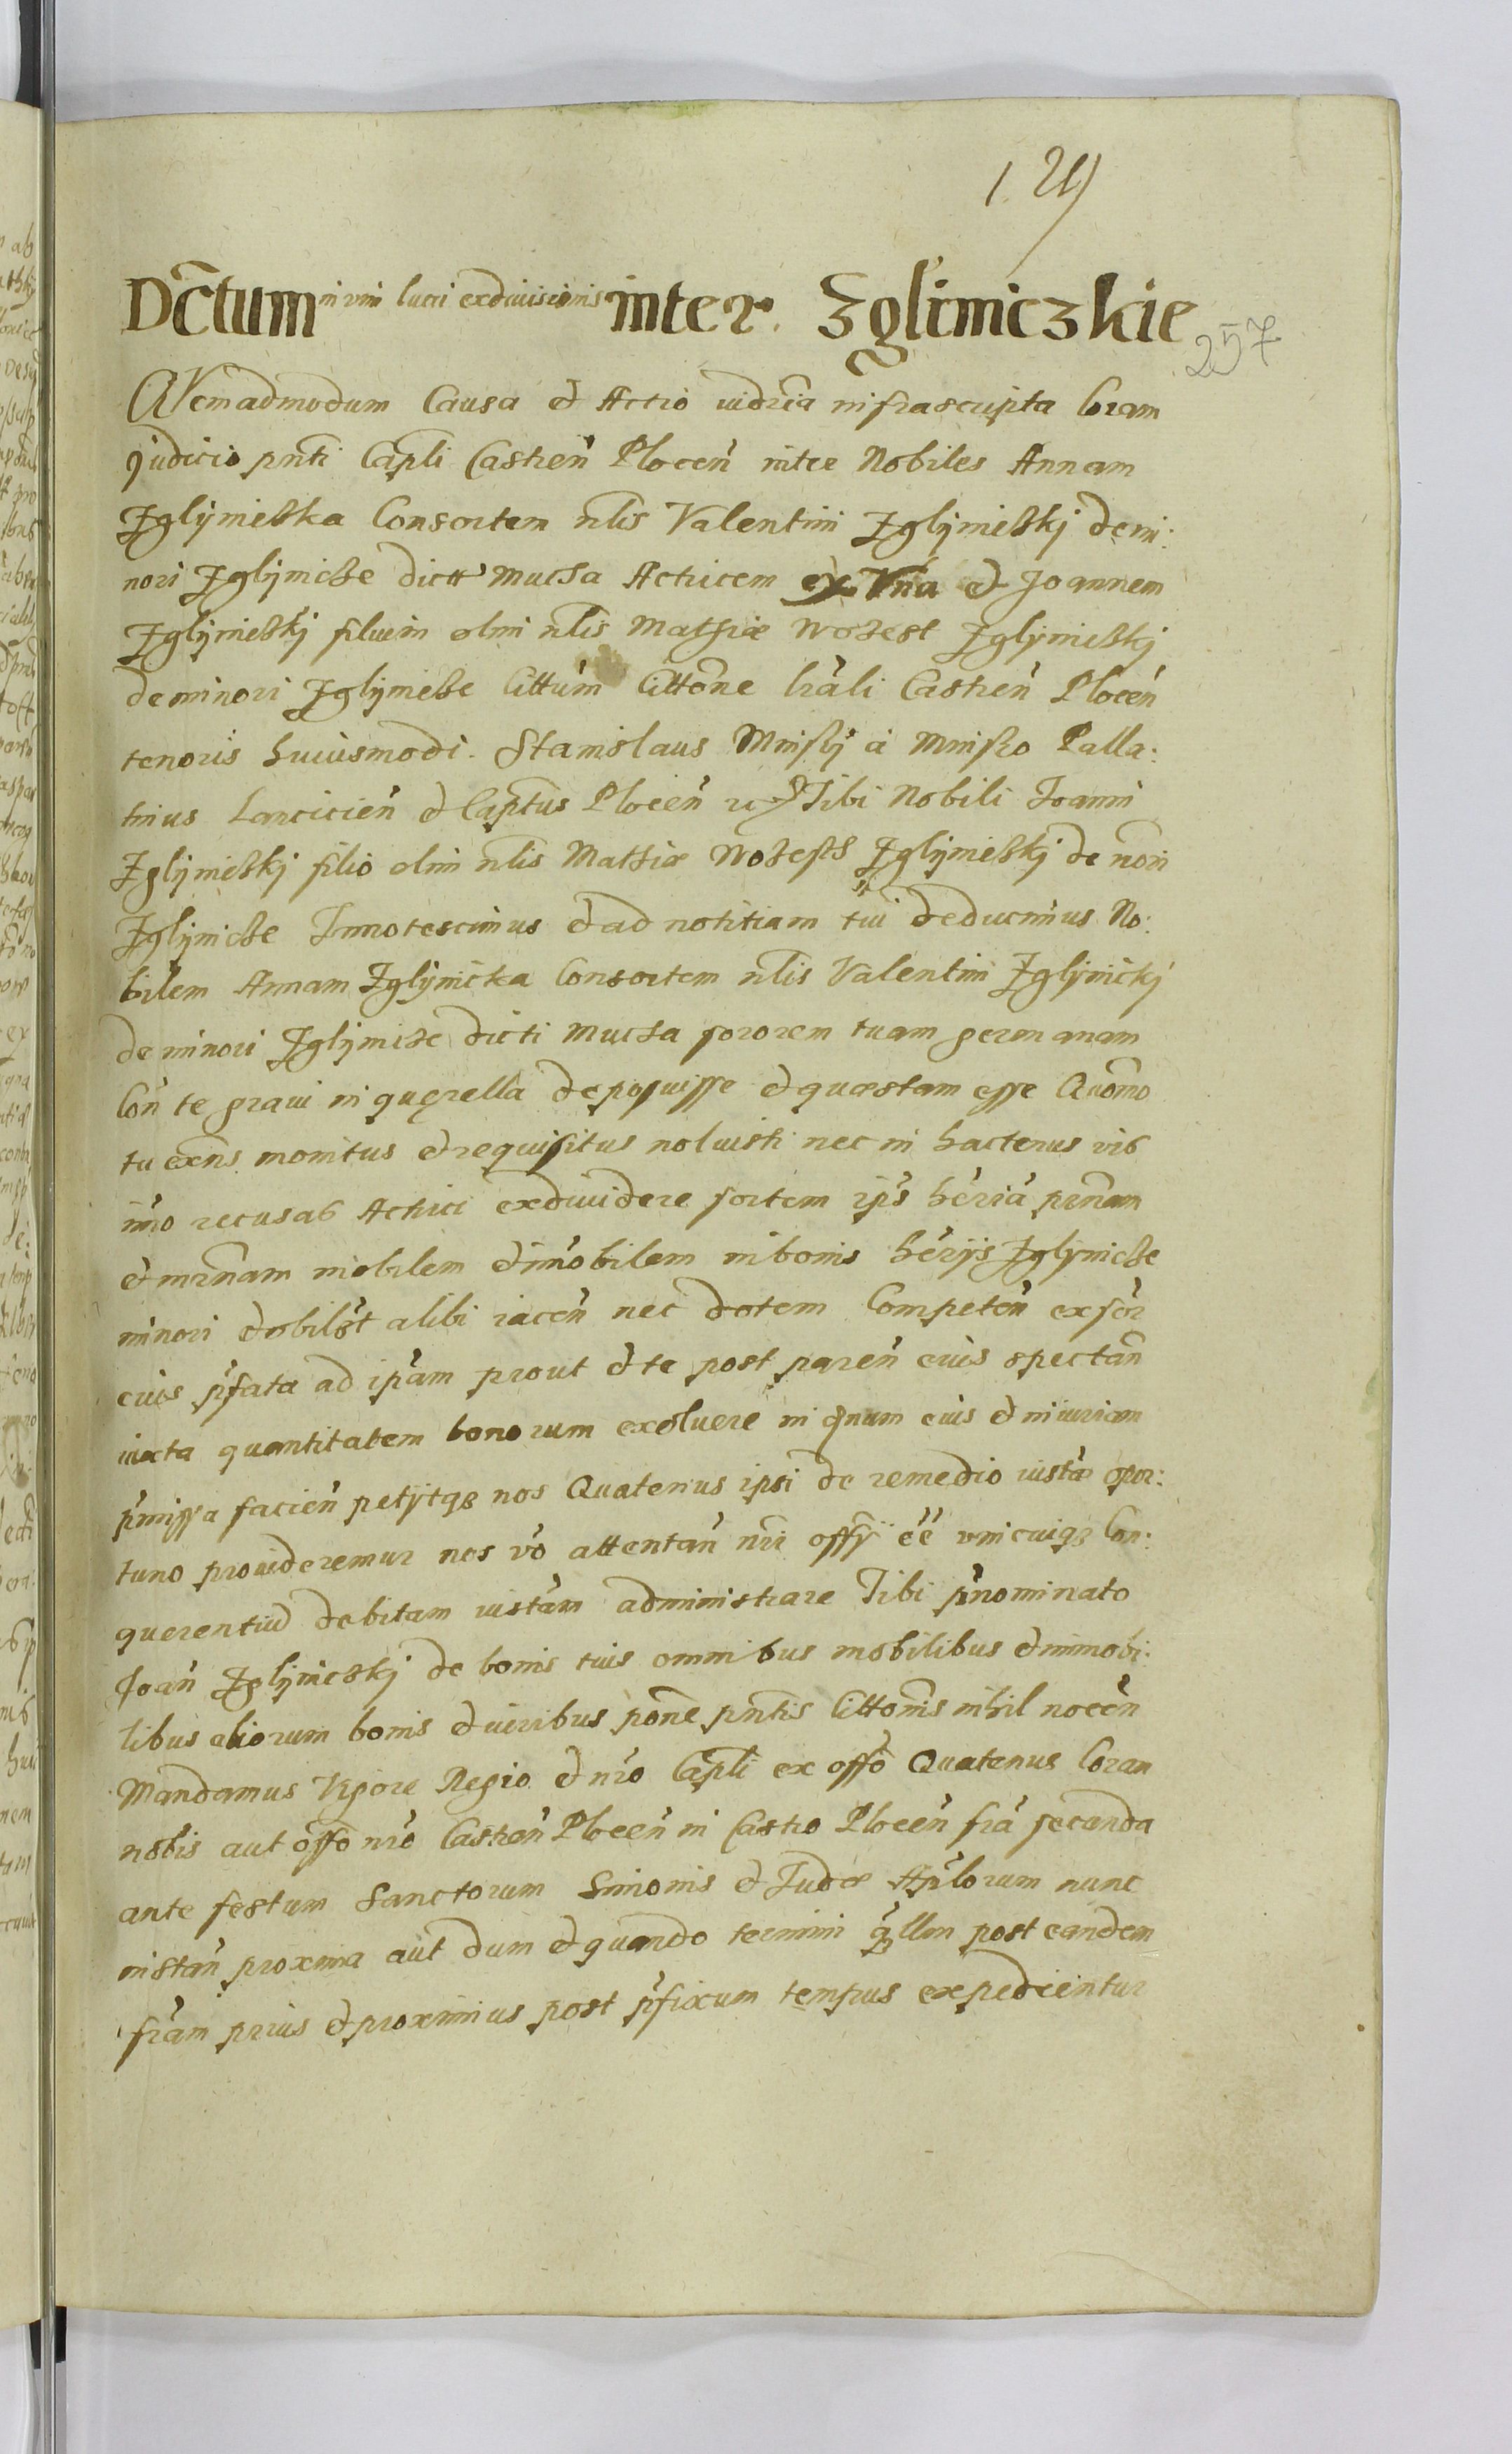 257
Dctum in vim lucri exdivisionis inter Zgliniczkie
Quemadmodum Causa et Actio iudicia infrascripta Coram
Judicio pnti Capli Castren Plocen inter Nobiles Annam
Zglijniczka Consortem nlis Valentini Zglijniczkj de mi:
nori Zglijnicze dicti Mucha Actricem ex Vna et Joannem
Zglijniczkj filium olim nlis Mathiæ Zglijniczkj
de minori Zglijnicze Cittum Cittone lrali Castren Plocen
tenoris huiusmodi. Stanislaus Minskj a Minsko Palla:
tinus Lancicien et Captus Plocen Tibi Nobili Joanni
Zglijniczkj filio olim nlis Mathiæ Zglijniczkj de nori
Zglijnicze Innotescimus et ad notitiam tui deducimus No:
bilem Annam Zglijnicka Consortem nlis Valentini Zglijnickj
de minori Zglijnicze dicti Mucha sororem tuam germanam
Con te gravi in querella deposuisse et quæstam esse Quomo
tu exns monitus et requisitus noluisti nec in hactenus vis
imo recusas Actrici exdividere sortem ips heria prnam
et mrnam mobilem et imobilem in bonis herijs Zglijnicze
minori et vbilbt alibi iacen nec dotem Competen ex sor
eius pfata ad ipam prout et te post paren eius spectan
iuxta quantitatem bonorum exoluere in eius et iniuriam
pmissa facien petijtqe nos Quatenus ipsi de remedio iustæ opor:
tuno provideremur nos vo attentan nri offij ee unicuiqe Con:
querentiu debitam iustam administrare Tibi pnominato
Joan Zglijniczkj de bonis tuis omnibus mobilibus et immobi:
libus aliorum bonis et iuribus pone pntis Cittonis nihil nocen
Mandamus Vigore Regio et nro Capli ex offo Quatenus Coram
nobis aut offo nro Castren Plocen in Castro Plocen fria secunda
ante festum Sanctorum Simonis et Judæ Aplorum nunc
instan proxima aut dum et quando termini qllm post eandem
friam prius et proximius post pfixum tempus expedientur